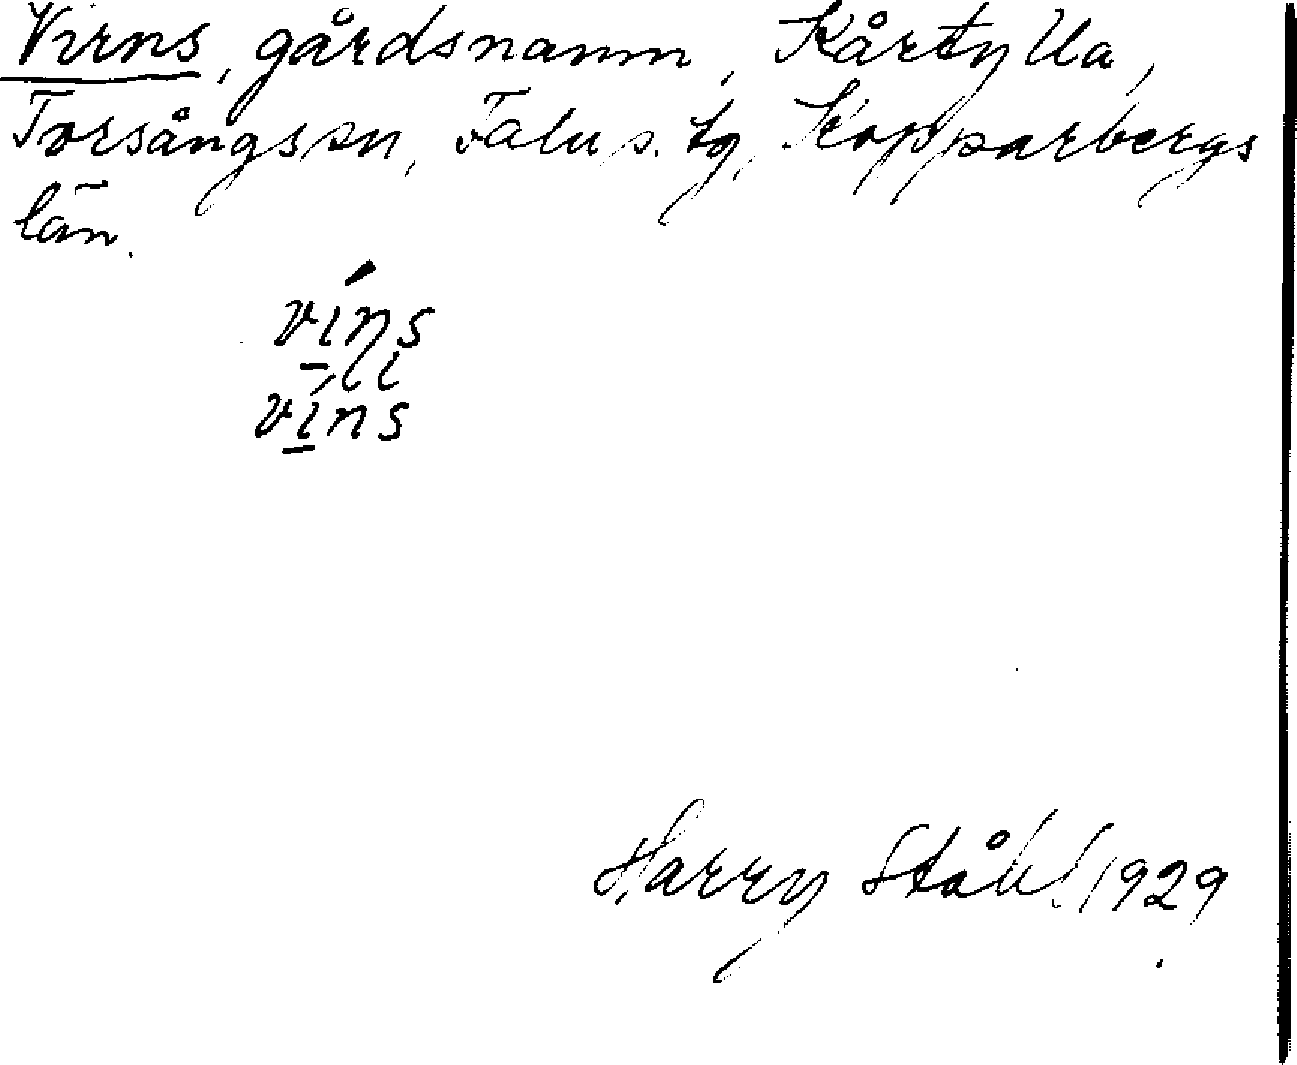 Virns, gårdsnamn, Kårtylla,
Torsångs sn, Falu s. tg, Kopparbergs
län.
víns
víns
Harry Ståhl 1929